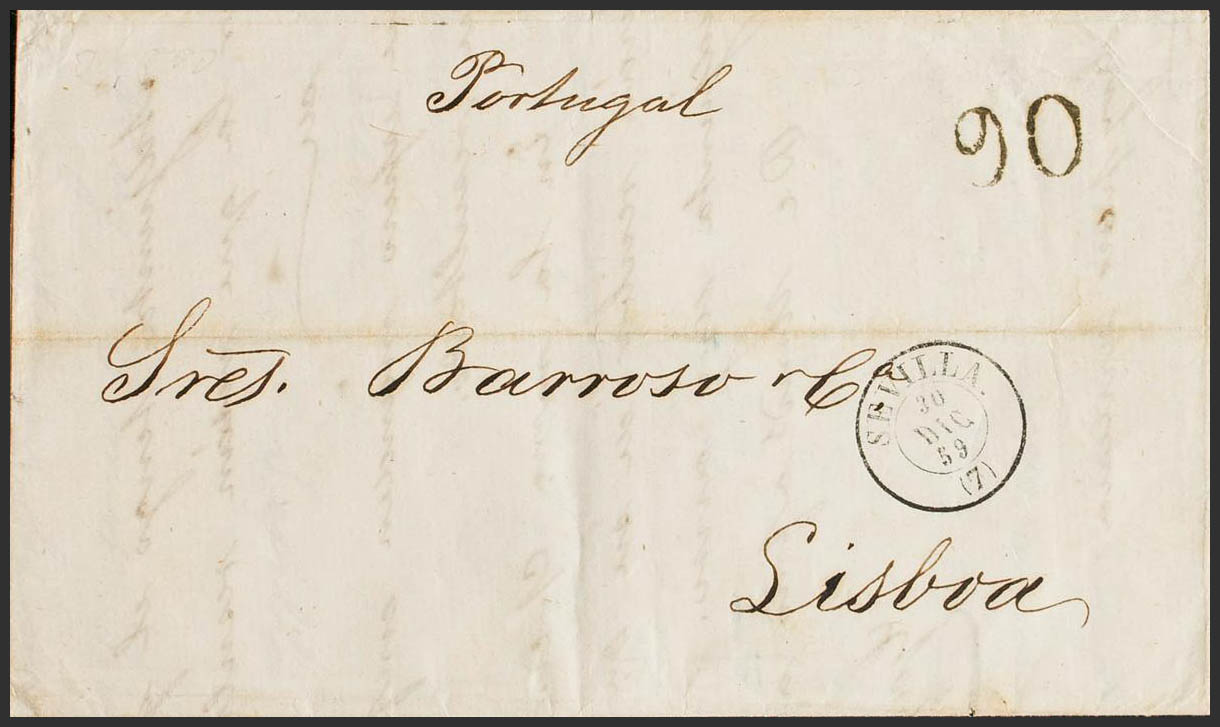 Portugal
90
Sres. Barroso y Cª
SEVILLA.
30
DIC
59
(7)
Lisboa